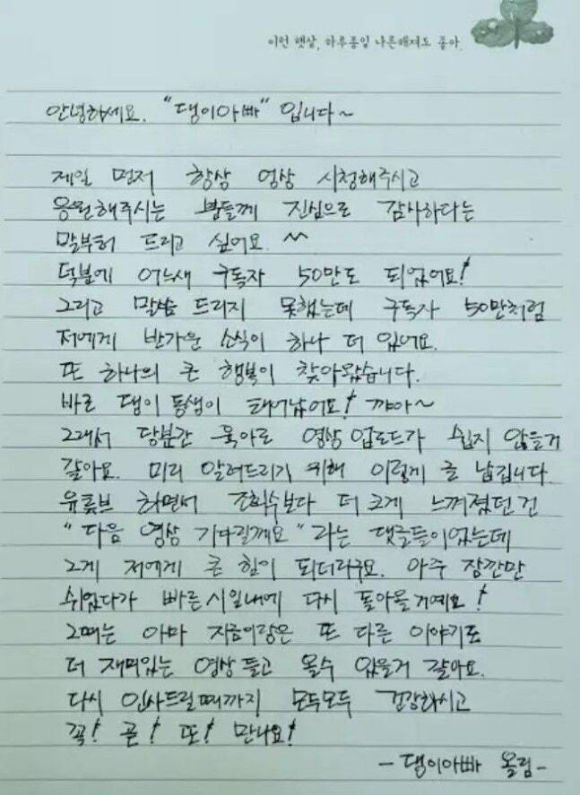 이런 햇살, 하루종일 나른해져도 좋아.
안녕하세요. "댕이아빠" 입니다~
제일 먼저 항상 영상 시청해주시고
응원해주시는 분들께 진심으로 감사하다는
말부터 드리고 싶어요 ^^
덕분에 어느새 구독자 50만도 되었어요!
그리고 말씀 드리지 못했는데 구독자 50만처럼
저에게 반가운 소식이 하나 더 있어요.
또 하나의 큰 행복이 찾아왔습니다.
바로 댕이 동생이 태어났어요! 꺄아~
그래서 당분간 육아로 영상 업로드가 쉽지 않을거
같아요. 미리 알려드리기 위해 이렇게 글 남깁니다.
유튜브 하면서 조회수보다 더 크게 느껴졌던건
"다음 영상 기다릴께요" 라는 댓글들이었는데
그게 저에게 큰 힘이 되더라구요. 아주 잠깐만
쉬었다가 빠른시일내에 다시 돌아올거예요!
그때는 아마 지금이랑은 또 다른 이야기로
더 재미있는 영상 들고 올수 있을거 같아요.
다시 인사드릴때까지 모두모두 건강하시고
꼭! 곧! 또! 만나요!
- 댕이아빠 올림 -